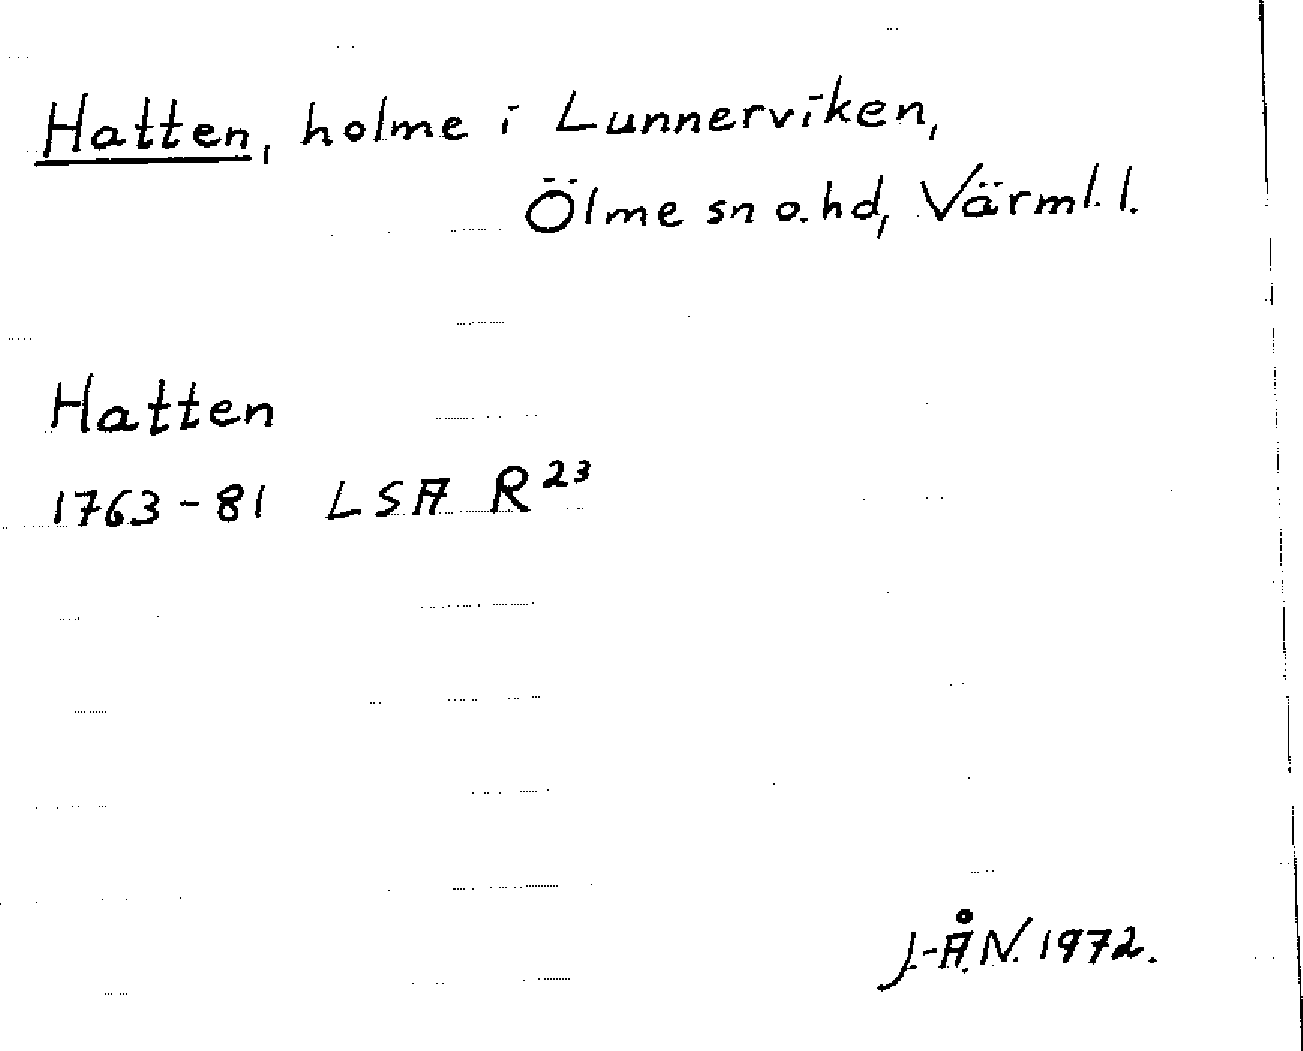 Hatten, holme i Lunnerviken,
Ölme sn o. hd, Värml. l.
Hatten
1763-81 LSA R 23
J.-Å.N. 1972.